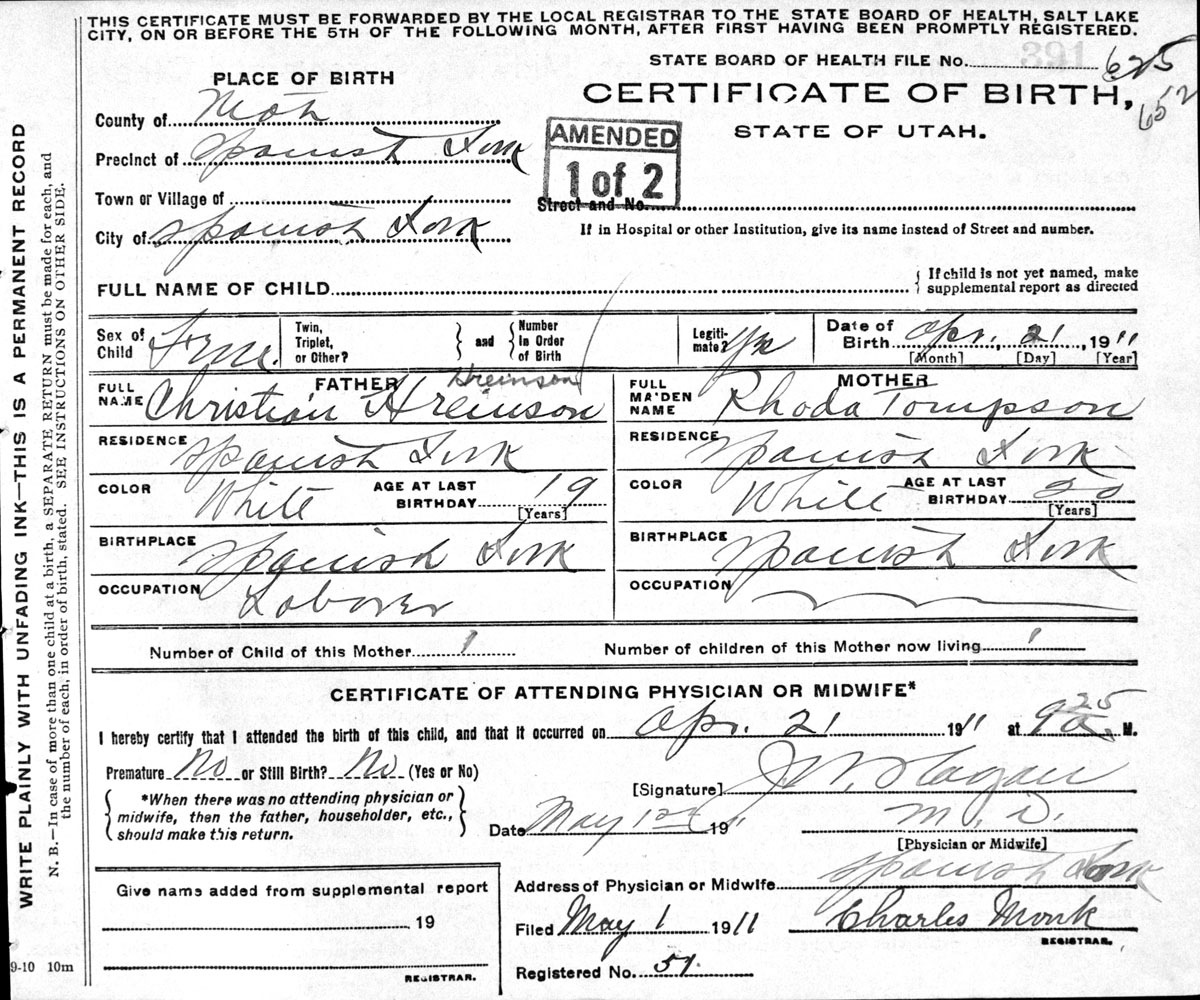 THIS CERTIFICATE MUST BE FORWARDED BY THE LOCAL REGISTRAR TO THE STATE BOARD OF HEALTH, SALT LAKE
CITY, ON OR BEFORE THE 5TH OF THE FOLLOWING MONTH, AFTER FIRST HAVING BEEN PROMPTLY REGISTERED.
WRITE PLAINLY WITH UNFADING INK—THIS IS A PERMANENT RECORD
N. B.—In case of more than one child at a birth, a SEPARATE RETURN must be made for each, and
the number of each, in order of birth, stated. SEE INSTRUCTIONS ON OTHER SIDE.
STATE BOARD OF HEALTH FILE No. 625
652
PLACE OF BIRTH
CERTIFICATE OF BIRTH,
STATE OF UTAH.
County of
Precinct of Spanish Fork
AMENDED
1 of 2
Town or Village of
Street and No.
City of Spanish Fork
If in Hospital or other Institution, give its name instead of Street and number.
FULL NAME OF CHILD
If child is not yet named, make
supplemental report as directed
Sex of Child Fme. Twin, Triplet, or Other? and Number in Order of Birth Legiti-mate? Yes Date of Birth Apr. 21 1911
[Month] [Day] [Year]
FATHER
Hreinson
FULL NAME Christian Hreinson
MOTHER
FULL MAIDEN NAME Rhoda Tompson
RESIDENCE Spanish Fork
RESIDENCE Spanish Fork
COLOR White AGE AT LAST BIRTHDAY 19 [Years]
COLOR White AGE AT LAST BIRTHDAY 20 [Years]
BIRTHPLACE Spanish Fork
BIRTHPLACE Spanish Fork
OCCUPATION Laborer
OCCUPATION
Number of Child of this Mother 1
Number of children of this Mother now living 1
CERTIFICATE OF ATTENDING PHYSICIAN OR MIDWIFE*
I hereby certify that I attended the birth of this child, and that it occurred on Apr. 21 1911 at 9 25 a. M.
Premature No or Still Birth? No (Yes or No)
*When there was no attending physician or
midwife, then the father, householder, etc.,
should make this return.
[Signature]
Date May 1st 1911 M. D.
[Physician or Midwife]
Address of Physician or Midwife Spanish Fork
Give name added from supplemental report
19
REGISTRAR.
Filed May 1 1911 Charles Monk
REGISTRAR.
Registered No. 51
9-10 10m